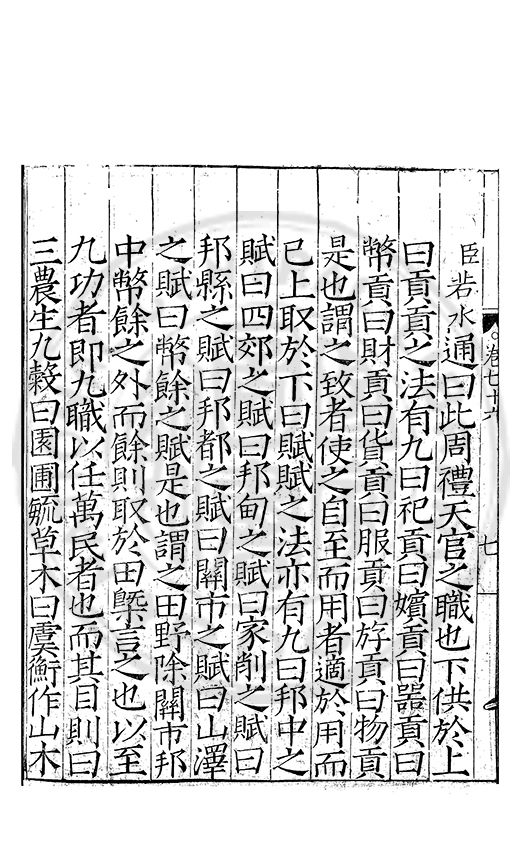 卷七十六
七
臣若水通曰此周禮天官之職也下供於上
曰貢貢之法有九曰祀貢曰嬪貢曰器貢曰
幣貢曰財貢曰貨貢曰服貢曰斿貢曰物貢
是也謂之致者使之自至而用者適於用而
已上取於下曰賦賦之法亦有九曰邦中之
賦曰四郊之賦曰邦甸之賦曰家削之賦曰
邦縣之賦曰邦都之賦曰關市之賦曰山澤
之賦曰幣餘之賦是也謂之田野除關市邦
中幣餘之外而餘則取於田槩言之也以至
九功者即九職以任萬民者也而其目則曰
三農生九穀曰園圃毓草木曰虞衡作山木